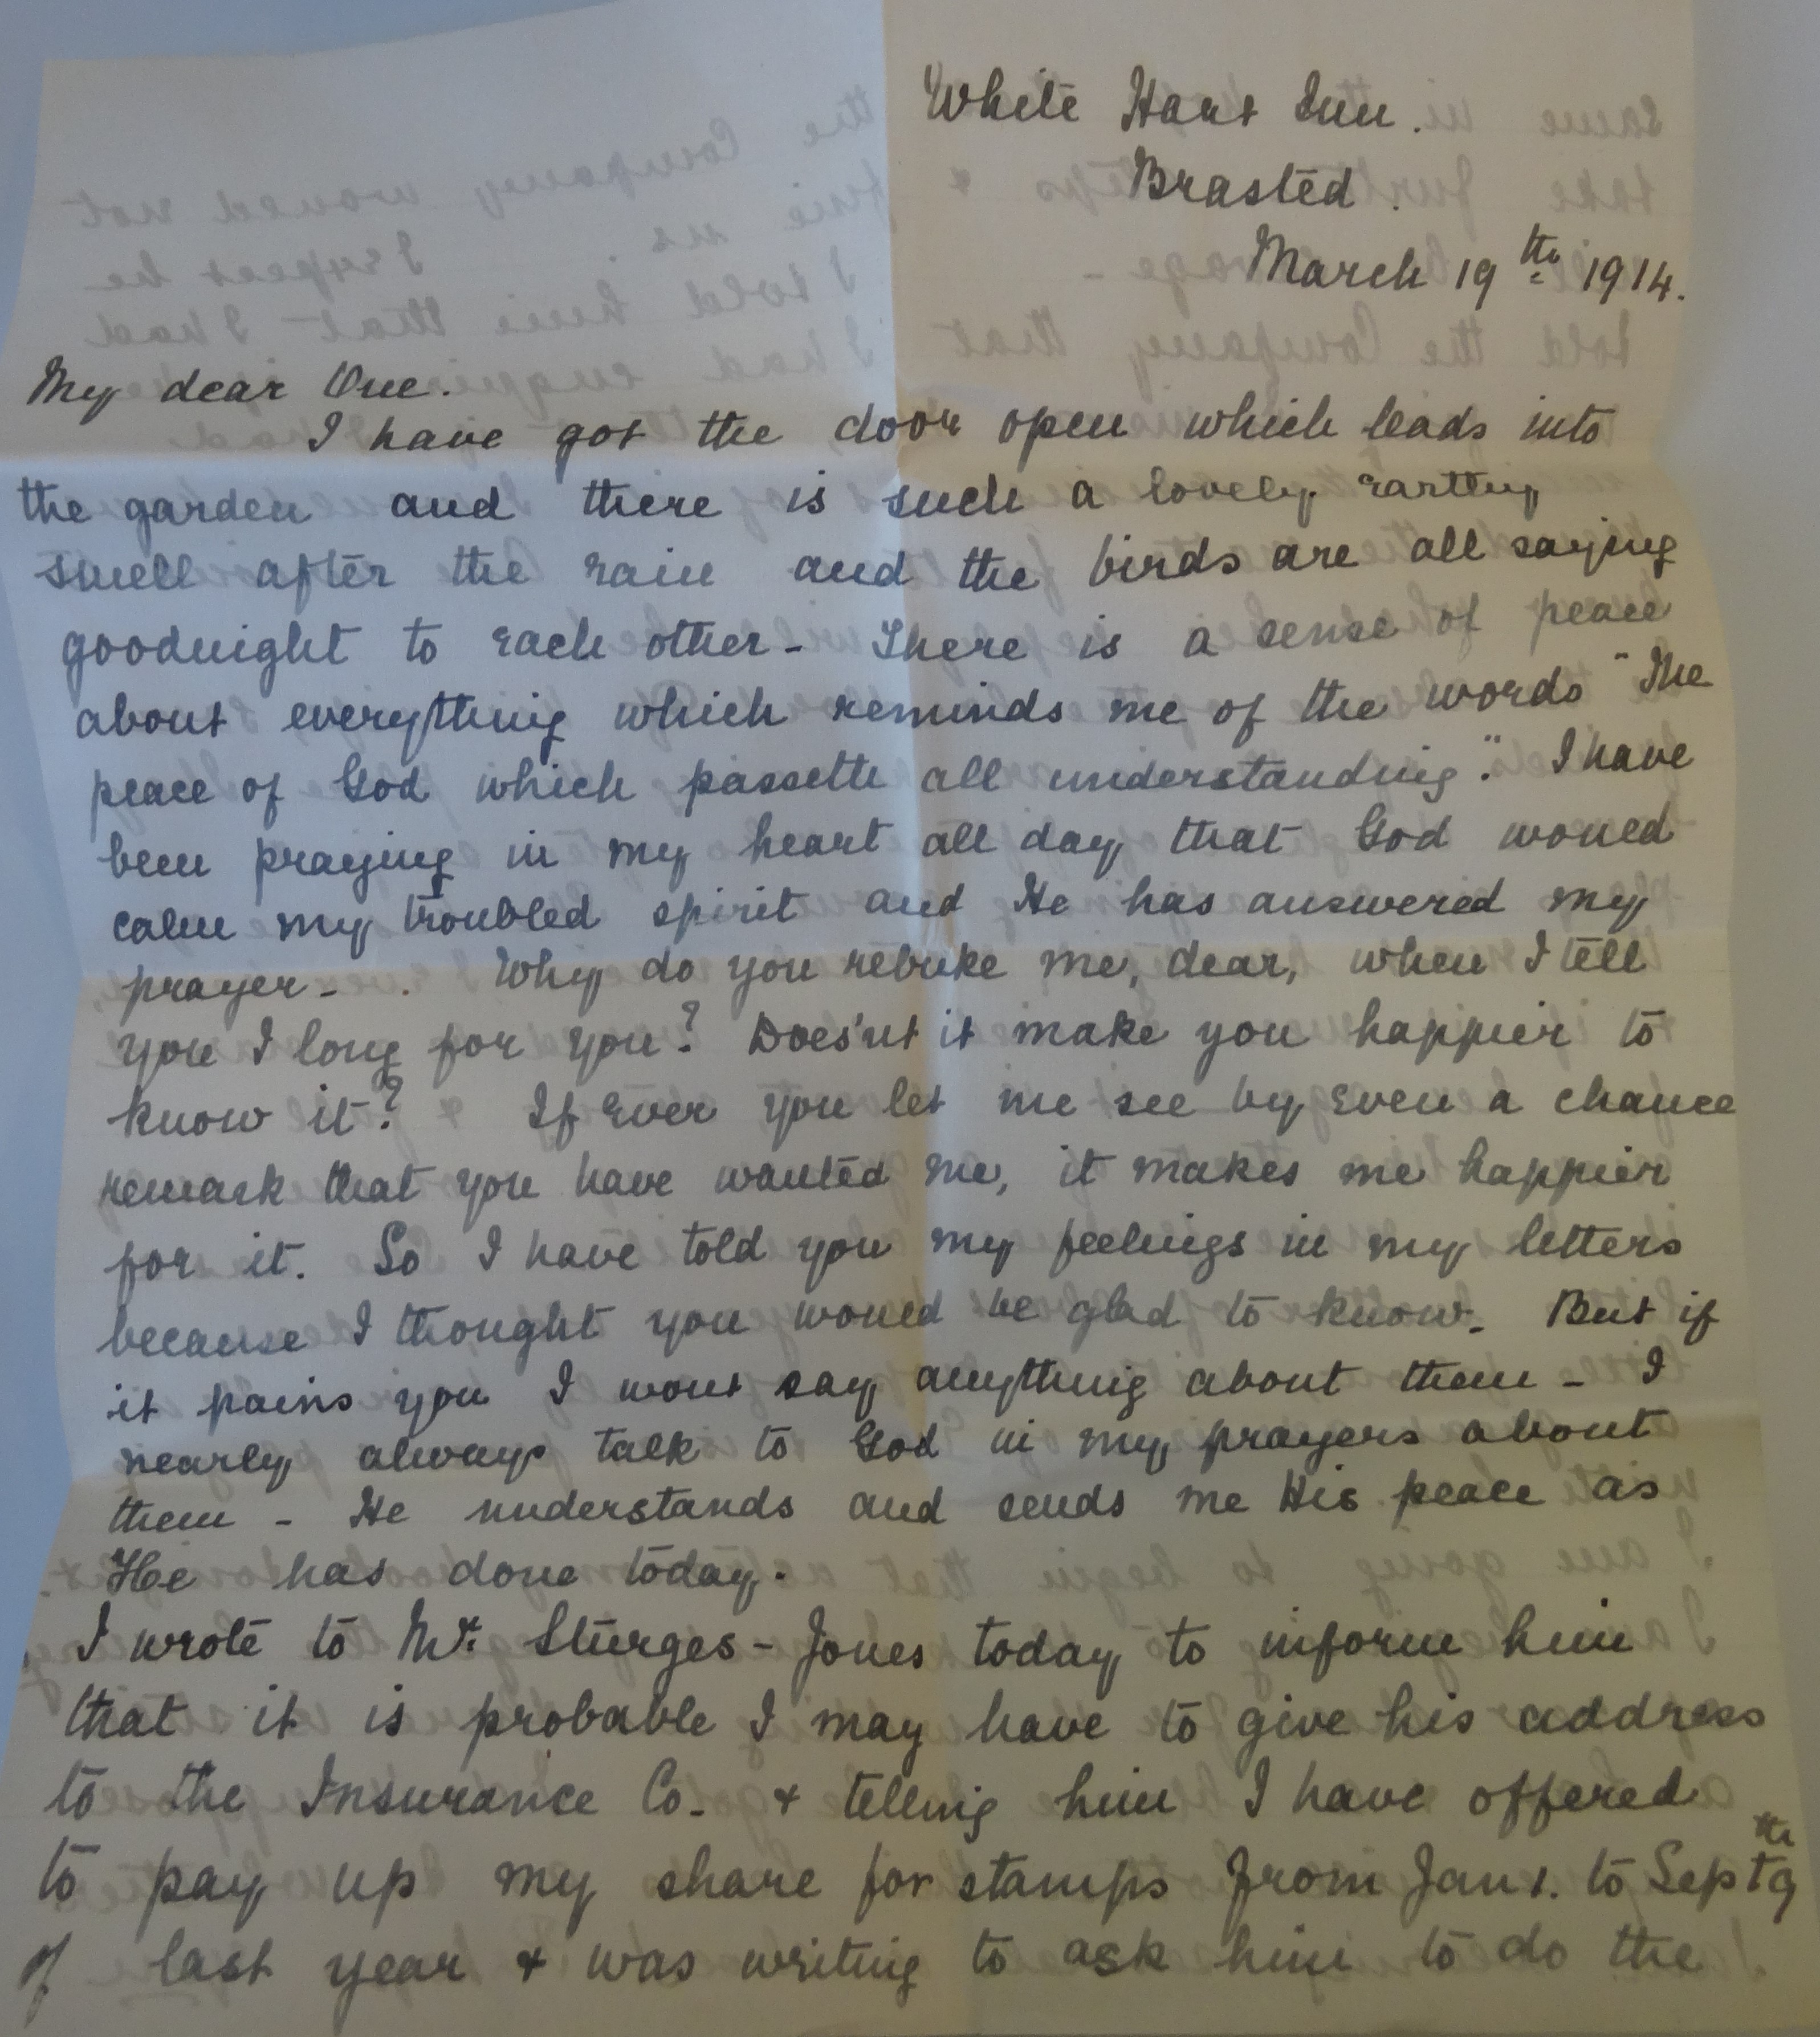 White Hart Inn.
Brasted.
March 19th 1914.
My dear One.
I have got the door open which leads into
the garden and there is such a lovely earthy
smell after the rain and the birds are all saying
goodnight to each other - There is a sense of peace
about everything which reminds me of the words "The
peace of God which passeth all understanding". I have
been praying in my heart all day that God would
calm my troubled spirit and He has answered my
prayer - . Why do you rebuke me, dear, when I tell
you I long for you? Does'nt it make you happier to
know it? If ever you let me see by even a chance
remark that you have wanted me, it makes me happier
for it. So I have told you my feelings in my letters
because I thought you would be glad to know. But if
it pains you I wont say anything about them - I
nearly always talk to God in my prayers about
them - He understands and sends me His peace as
He has done today.
I wrote to Mr. Sturges-Jones today to inform him
that it is probable I may have to give his address
to the Insurance Co. & telling him I have offered
to pay up my share for stamps from Jan 1. to Sept 9th
of last year & was writing to ask him to do the